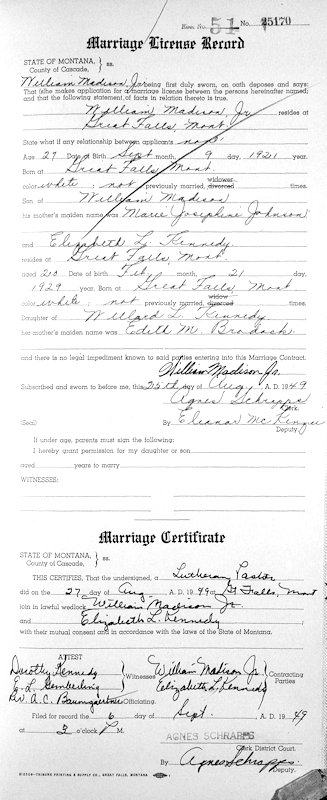 Book No. 51 No. 25170
Marriage License Record
STATE OF MONTANA,
County of Cascade, } ss.
William Madison, Jr being first duly sworn, on oath deposes and says:
That (s)he makes application for a marriage license between the persons hereinafter named;
and that the following statement of facts in relation thereto is true.
William Madison, Jr resides at
Great Falls, Mont.
State what if any relationship between applicants none
Age 27 Date of Birth Sept month, 9 day, 1921 year.
Born at Great Falls, Mont
color white; not previously married, widower divorced times.
Son of William Madison
his mother's maiden name was Marie Josephine Johnson
and Elizabeth L. Kennedy
resides at Great Falls, Mont.
aged 20 Date of birth Feb. month, 21 day,
1929 year. Born at Great Falls, Mont
color white; not previously married, widow divorced times.
Daughter of Willard L. Kennedy
her mother's maiden name was Edith M.
and there is no legal impediment known to said parties entering into this Marriage Contract.
William Madison Jr.
Subscribed and sworn to before me, this 25th day of Aug, A. D. 1949
Agnes Schrapps
Clerk.
(Seal) By Eleanor
Deputy.
If under age, parents must sign the following:
I hereby grant permission for my daughter or son
aged years to marry
WITNESSES:
Marriage Certificate
STATE OF MONTANA,
County of Cascade, } ss.
THIS CERTIFIES, That the undersigned, a Lutheran Pastor
did on the 27 day of Aug. A. D. 1949 at Gt Falls, Mont
join in lawful wedlock William Madison Jr.
and Elizabeth L. Kennedy
with their mutual consent and in accordance with the laws of the State of Montana.
ATTEST
Dorothy Kennedy } Witnesses William Madison Jr } Contracting
E. L. Gemberling Elizabeth L. Kennedy Parties
A.C. Baumgaertner Officiating.
Filed for record the 6 day of Sept. A. D. 1949
at 3 o'clock P. M.
AGNES SCHRAPPS
Clerk District Court.
By Agnes Schrapps
Deputy.
TRIBUNE PRINTING & SUPPLY CO., GREAT FALLS, MONTANA